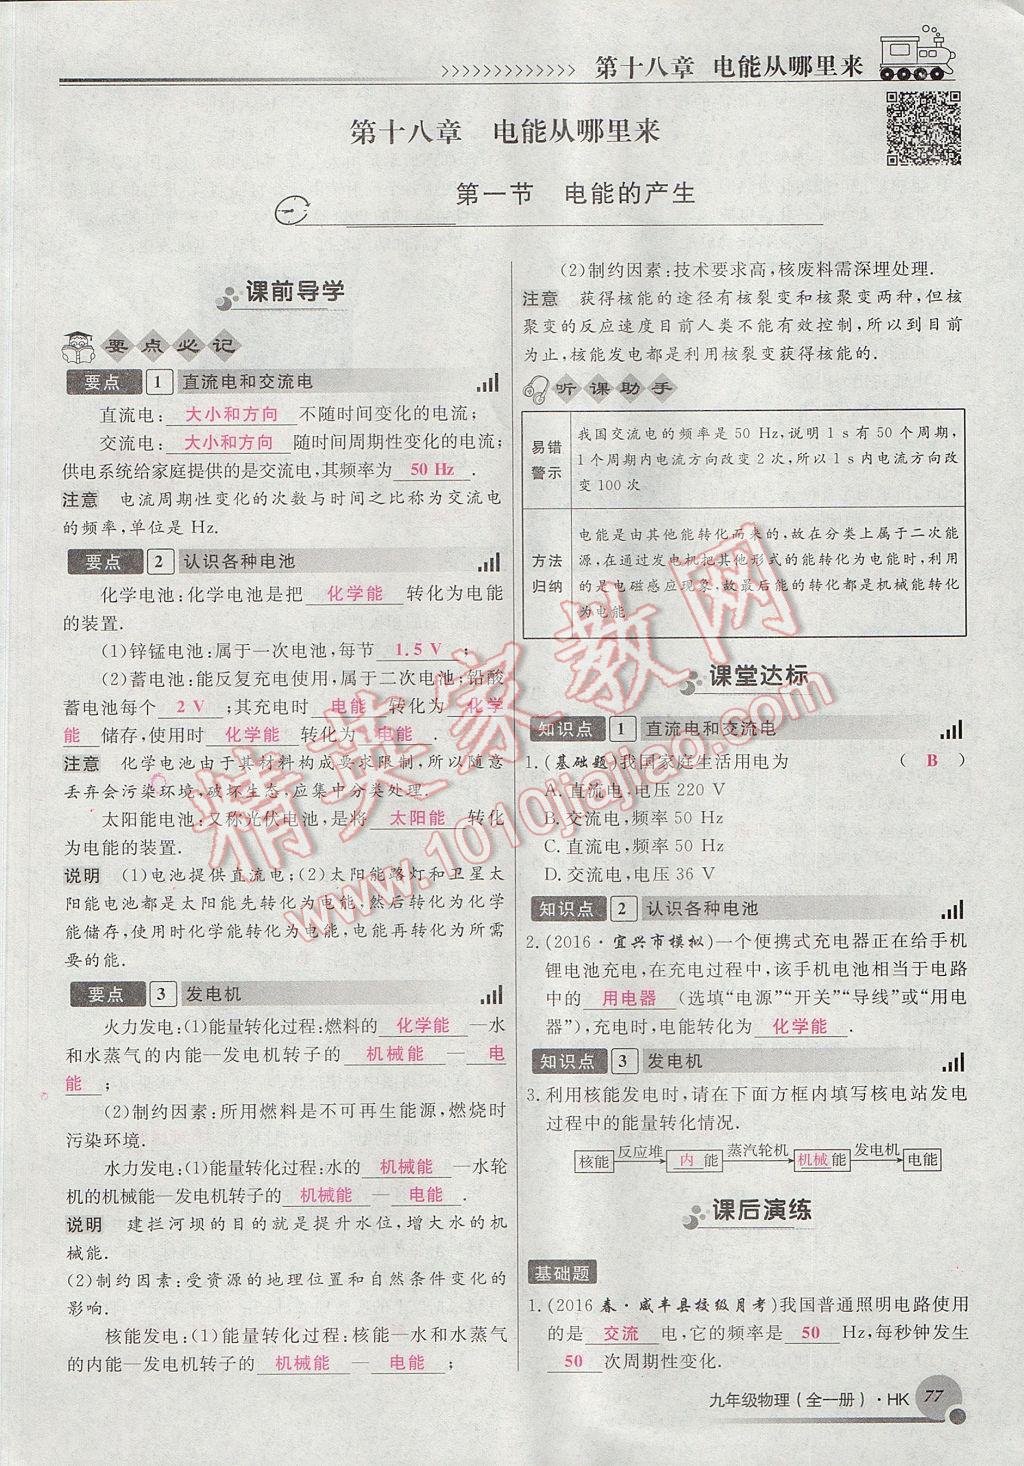 第十八章 电能从哪里来
第十八章 电能从哪里来
第一节 电能的产生
课前导学
要点必记
要点 1 直流电和交流电
直流电: 大小和方向 不随时间变化的电流;
交流电: 大小和方向 随时间周期性变化的电流;
供电系统给家庭提供的是交流电,其频率为 50 Hz .
注意 电流周期性变化的次数与时间之比称为交流电
的频率,单位是 Hz.
要点 2 认识各种电池
化学电池:化学电池是把 化学能 转化为电能
的装置.
(1)锌锰电池:属于一次电池,每节 1.5 V ;
(2)蓄电池:能反复充电使用,属于二次电池;铅酸
蓄电池每个 2 V ;其充电时 电能 转化为 化学
能 储存,使用时 化学能 转化为 电能 .
注意 化学电池由于其材料构成要求限制,所以随意
丢弃会污染环境,破坏生态,应集中分类处理.
太阳能电池:又称光伏电池,是将 太阳能 转化
为电能的装置.
说明 (1)电池提供直流电;(2)太阳能路灯和卫星太
阳能电池都是太阳能先转化为电能,然后转化为化学
能储存,使用时化学能转化为电能,电能再转化为所
需要的能.
要点 3 发电机
火力发电:(1)能量转化过程:燃料的 化学能 —水
和水蒸气的内能—发电机转子的 机械能 — 电
能 ;
(2)制约因素:所用燃料是不可再生能源,燃烧时
污染环境.
水力发电:(1)能量转化过程:水的 机械能 —水轮
机的机械能—发电机转子的 机械能 — 电能 .
说明 建拦河坝的目的就是提升水位,增大水的机
械能.
(2)制约因素:受资源的地理位置和自然条件变化的
影响.
核能发电:(1)能量转化过程:核能—水和水蒸气
的内能—发电机转子的 机械能 — 电能 ;
(2)制约因素:技术要求高,核废料需深埋处理.
注意 获得核能的途径有核裂变和核聚变两种,但核
聚变的反应速度目前人类不能有效控制,所以到目前
为止,核能发电都是利用核裂变获得核能的.
听课助手
易错
警示
我国交流电的频率是 50 Hz,说明 1 s 有 50 个周期,
1 个周期内电流方向改变 2 次,所以 1 s 内电流方向改
变 100 次
方法
归纳
电能是由其他能转化而来的,故在分类上属于二次能
源,在通过发电机把其他形式的能转化为电能时,利用
的是电磁感应现象,故最后能的转化都是机械能转化
为电能
课堂达标
知识点 1 直流电和交流电
1.(基础题)我国家庭生活用电为 ( B )
A.直流电,电压 220 V
B.交流电,频率 50 Hz
C.直流电,频率 50 Hz
D.交流电,电压 36 V
知识点 2 认识各种电池
2.(2016·宜兴市模拟)一个便携式充电器正在给手机
锂电池充电,在充电过程中,该手机电池相当于电路
中的 用电器 (选填“电源”“开关”“导线”或“用电
器”),充电时,电能转化为 化学能 .
知识点 3 发电机
3.利用核能发电时,请在下面方框内填写核电站发电
过程中的能量转化情况.
核能 反应堆 内 能 蒸汽轮机 机械能 发电机 电能
课后演练
基础题
1.(2016 春·咸丰县校级月考)我国普通照明电路使用
的是 交流 电,它的频率是 50 Hz,每秒钟发生
50 次周期性变化.
九年级物理(全一册)·HK 77
精英家教网
www.1010jiajiao.com